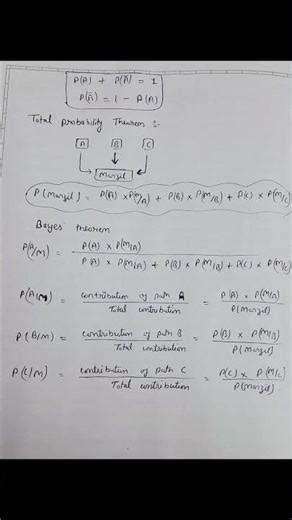 P(A) + P(Ā) = 1
P(Ā) = 1 - P(A)
Total probability Theorem :-
A B C
Manzil
P(Manzil) = P(A) × P(M/A) + P(B) × P(M/B) + P(C) × P(M/C)
Bayes theorem
P(A/M) = P(A) × P(M/A) / P(A) × P(M/A) + P(B) × P(M/B) + P(C) × P(M/C)
P(A/M) = contribution of path A / Total contribution = P(A) × P(M/A) / P(Manzil)
P(B/M) = contribution of path B / Total contribution = P(B) × P(M/B) / P(Manzil)
P(C/M) = contribution of path C / Total contribution = P(C) × P(M/C) / P(Manzil)